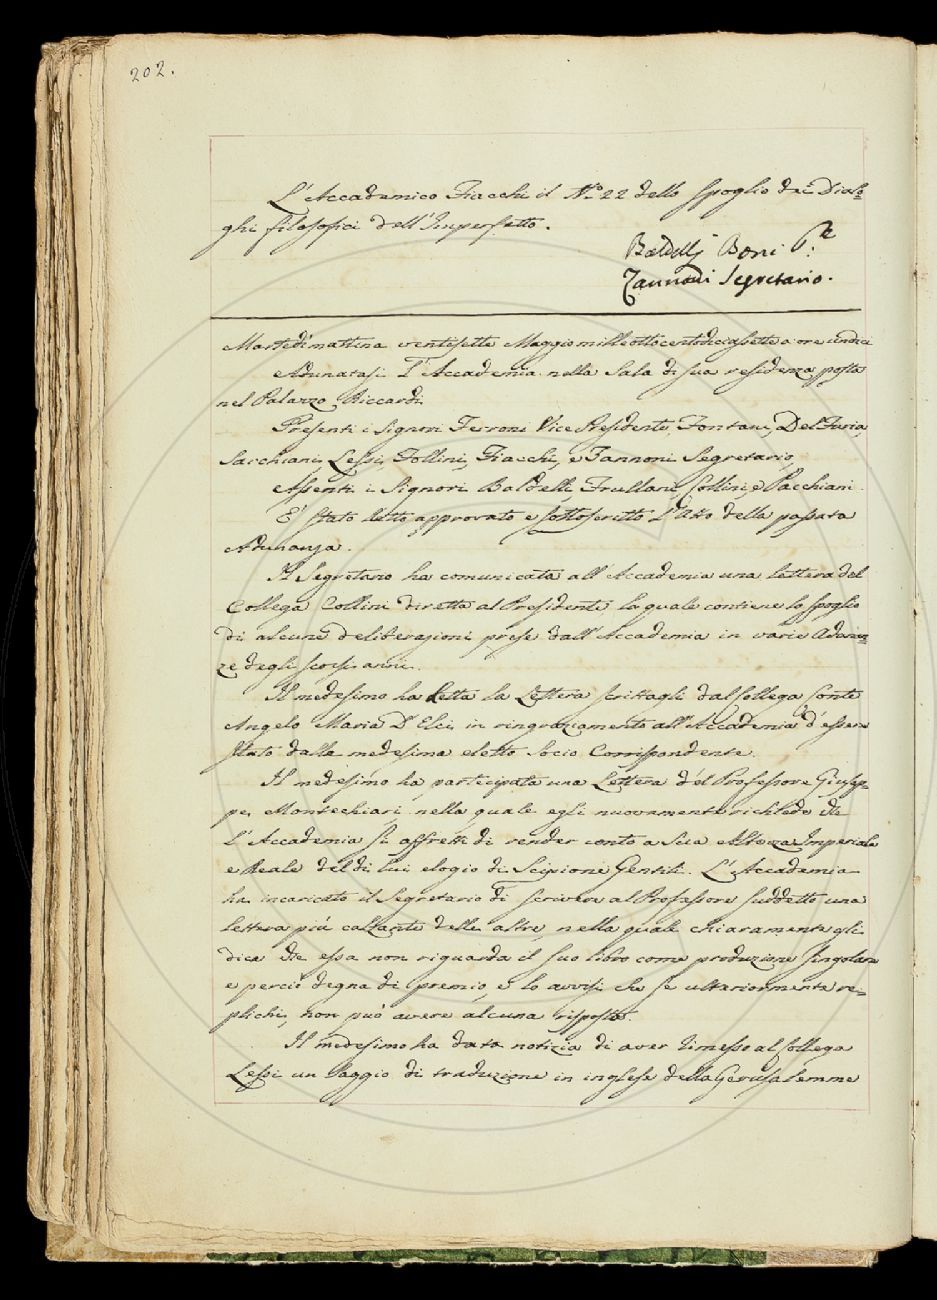 202.
L'Accademico Fiacchi il N.º 22 dello Spoglio de' Dialo=
ghi filosofici dell'Imperfetto.
Baldelli Boni P.te
Zannoni Segretario.
Martedì mattina ventisette Maggio mille ottocentodiciassette a ore undici
Adunatasi l'Accademia nella Sala di sua residenza posta
nel Palazzo Riccardi
Presenti i Signori Ferroni Vice Presidente, Fontani, Del Furia,
Sarchiani, Lessi, Follini, Fiacchi, e Zannoni Segretario,
Assenti i Signori Baldelli, Frullani, Collini, e Pacchiani.
E' stato letto, approvato e sottoscritto l'Atto della passata
Adunanza.
Il Segretario ha comunicata all'Accademia una lettera del
Collega Collini diretta al Presidente la quale contiene lo spoglio
di alcune deliberazioni prese dall'Accademia in varie Adunan=
ze degli scorsi anni.
Il medesimo ha letta la Lettera scrittagli dal Collega Conte
Angelo Maria D'Elci in ringraziamento all'Accademia d'essere
stato dalla medesima eletto Socio Corrispondente.
Il medesimo ha partecipata una Lettera del Professore Giusep=
pe Montechiari nella quale egli nuovamente richiede che
l'Accademia si affretti di render conto a Sua Altezza Imperiale
e Reale del di lui elogio di Scipione Gentili. L'Accademia
ha incaricato il Segretario di scrivere al Professore suddetto una
lettera più calzante delle altre, nella quale chiaramente gli
dica che essa non riguarda il suo libro come produzione singolare
e perciò degna di premio, e lo avvisi che se ulteriormente re=
plichi, non può avere alcuna risposta.
Il medesimo ha data notizia di aver rimesso al Collega
Lessi un Saggio di traduzione in inglese della Gerusalemme